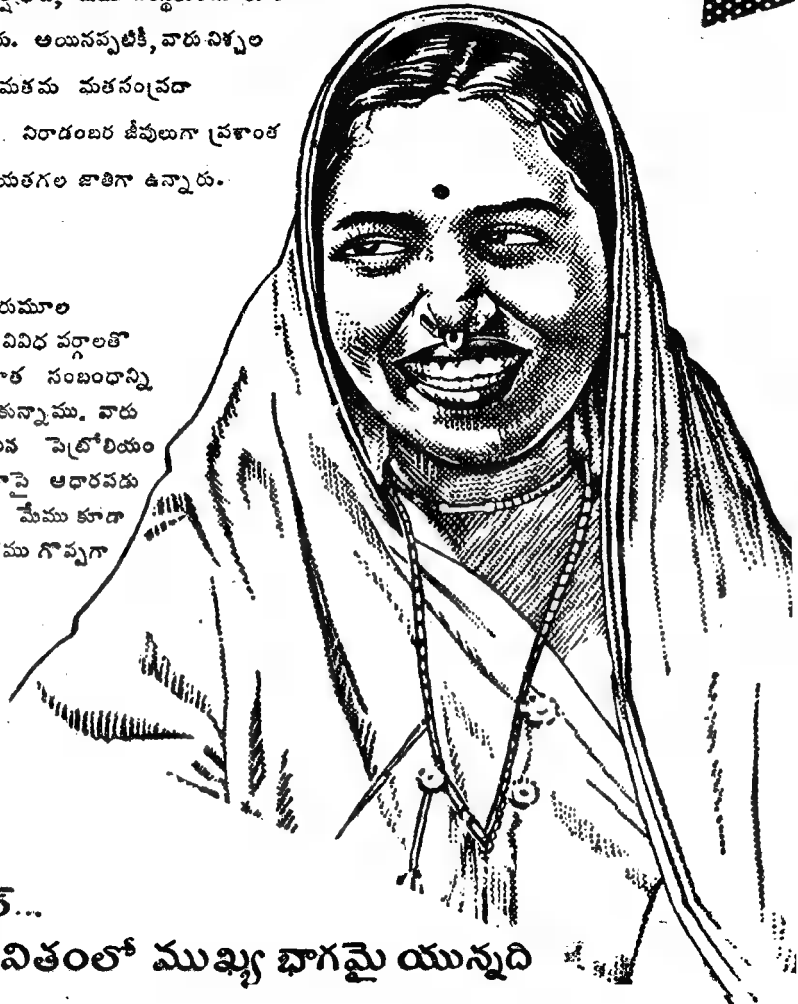 రు. ఆయినప్పటికీ, వారు నిశ్చల
మతమ మతసంప్రదా
నిరాడంబర జీవులుగా ప్రశాంత
యతగల జాతిగా ఉన్నారు.
రుమూల
వివిధ వర్గాలతొ
ాత సంబంధాన్ని
కున్నాము. వారు
ెువ పెట్రోలియం
ాపై ఆధారవడు
మేము కూడా
ము గొప్పగా
ర్...
వితంలో ముఖ్య భాగమై యున్నది